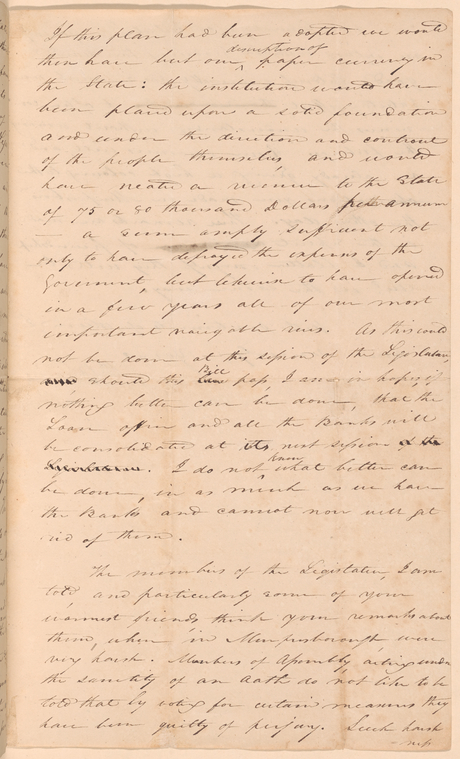 If this plan had been adopted we would
then have but one description of paper currency in
the State: the institution would have
been placed upon a solid foundation
and under the direction and controul
of the people themselves, and would
have created a revenue to the State
of 75 or 80 thousand Dollars per annum
— a sum amply sufficient not
only to have defrayed the expenses of the
Goverment, but likewise to have opened
in a few years all of our most
important navigable rivers. As this could
not be done at this session of the Legislature,
should this Bill pass, I am in hopes if
nothing better can be done, that the
Loan office and all the Banks will
be consolidated at its next session of the
Legislature. I do not know what better can
be done, in as much as we have
the Banks and cannot now well get
rid of them.
The members of the Legislature, I am
told, and particularly some of your
warmest friends think your remarks about
them, when in Murfreesborough, were
very harsh. Members of Assembly acting under
the sanctity of an oath do not like to be
told that by voting for certain measures they
have been guilty of perjury. Such harsh